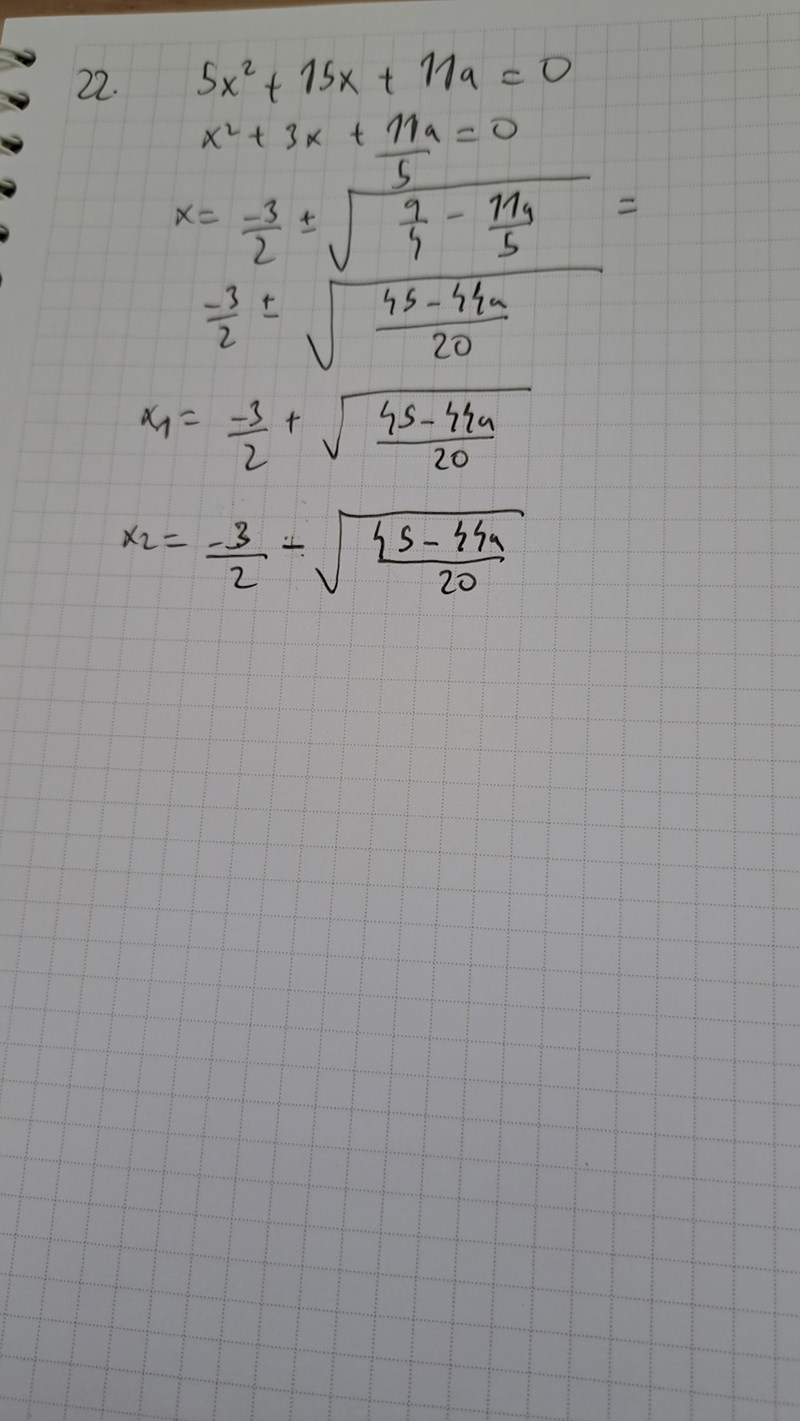 22. 5x² + 15x + 11a = 0
x² + 3x + 11a/5 = 0
x = -3/2 ± √(9/4 - 11a/5) =
-3/2 ± √((45 - 44a)/20)
x₁ = -3/2 + √((45 - 44a)/20)
x₂ = -3/2 - √((45 - 44a)/20)